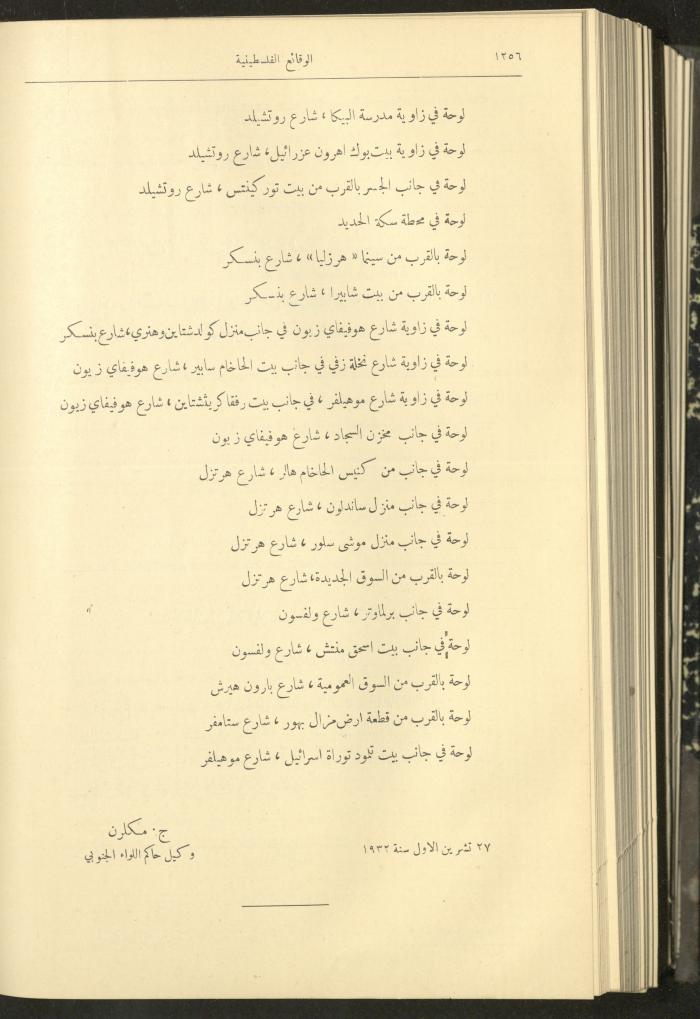 ١٢٥٦
الوقائع الفلسطينية
لوحة في زاوية مدرسة البيكا ، شارع روتشيلد
لوحة في زاوية بيت بوك اهرون عزرائيل، شارع روتشيلد
لوحة في جانب الجسر بالقرب من بيت توركينتس ، شارع روتشيلد
لوحة في محطة سكة الحديد
لوحة بالقرب من سينما « هرزليا» ، شارع بنسكر
لوحة بالقرب من بيت شابيرا ، شارع بنسكر
لوحة في زاوية شارع هوفيفاي زيون في جانب منزل كولدشتاين وهنري، شارع بنسكر
لوحة في زاوية شارع نخلة زفي في جانب بيت الحاخام سابير ، شارع هوفيفاي زيون
لوحة في زاوية شارع موهيلفر ، في جانب بيت رفقا كريتشتاين ، شارع هوفيفاي زيون
لوحة في جانب مخزن السجاد ، شارع هوفيفاي زيون
لوحة في جانب من كنيس الحاخام هالر ، شارع هرتزل
لوحة في جانب منزل ساندلون ، شارع هرتزل
لوحة في جانب منزل موشى سلور ، شارع هرتزل
لوحة بالقرب من السوق الجديدة، شارع هرتزل
لوحة في جانب برلماوتر ، شارع ولفسون
لوحة في جانب بيت اسحق منتش ، شارع ولفسون
لوحة بالقرب من السوق العمومية ، شارع بارون هيرش
لوحة بالقرب من قطعة ارض مزال بهور ، شارع ستامفر
لوحة في جانب بيت تلمود توراة اسرائيل ، شارع موهيلفر
٢٧ تشرين الاول سنة ١٩٣٢
ج. مكلرن
وكيل حاكم اللواء الجنوبي